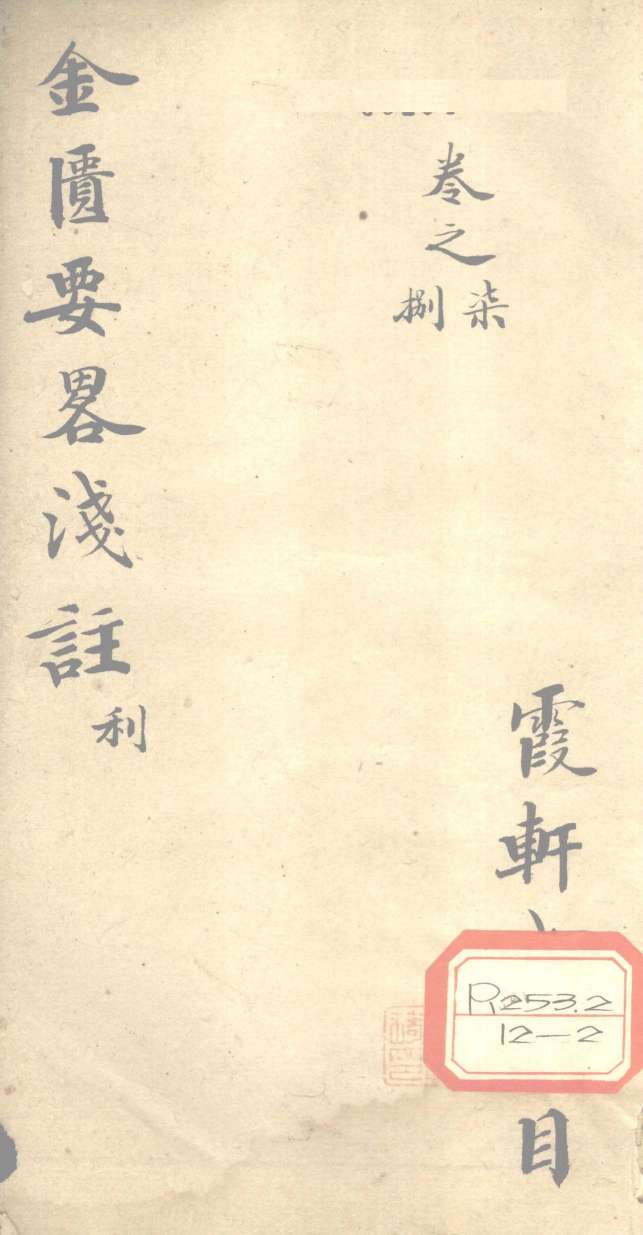 霞軒
目
卷之
柒
捌
金匱要畧淺註
利
R253.2
12—2